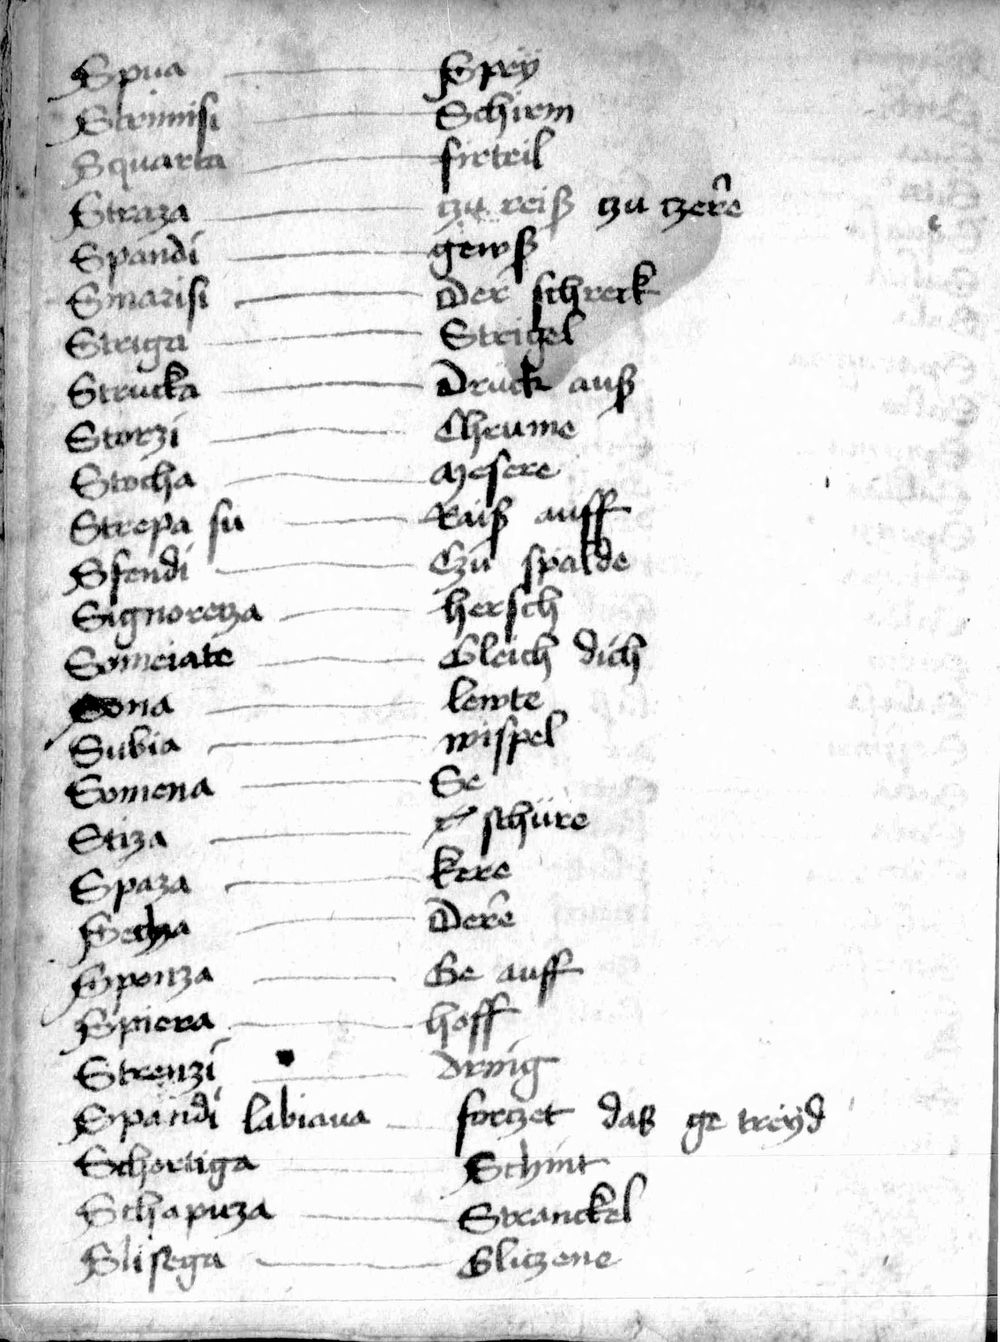 Spua Spey
Strimisi Schirm
Squarta firteil
Straza czu reiß czu tzere
Spandi gewß
Smarisi Der schreck
Striga Strigel
Strucka Druck auß
Storzi Chrume
Stocha Mesere
Strepa su Raiß auff
Sfendi Czu spalde
Signoreza hersch
Someiate Gleich dich
Sona lewte
Subia wispel
Somena Se
Stiza schüre
Spaza kere
Secha Dere
Sponza Ge auff
Spiera hoff
Strenzi
Spandi labiaua das ge treyd
Schortiga Schint
Schapuza Stranckel
Slisega Gliczene